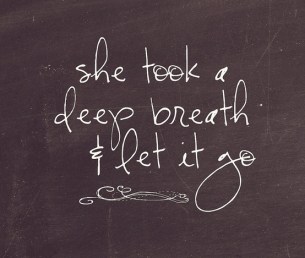 she took a
deep breath
& let it go